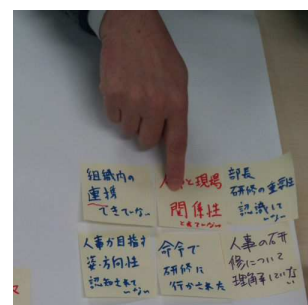 組織内の
連携
できていない
人事と現場
関係性
できていない
部長
研修の重要性
認識して
いない
人事が目指す
姿・方向性
認知されて
いない
命令で
研修に
行かされた
人事の研
修について
理解していない